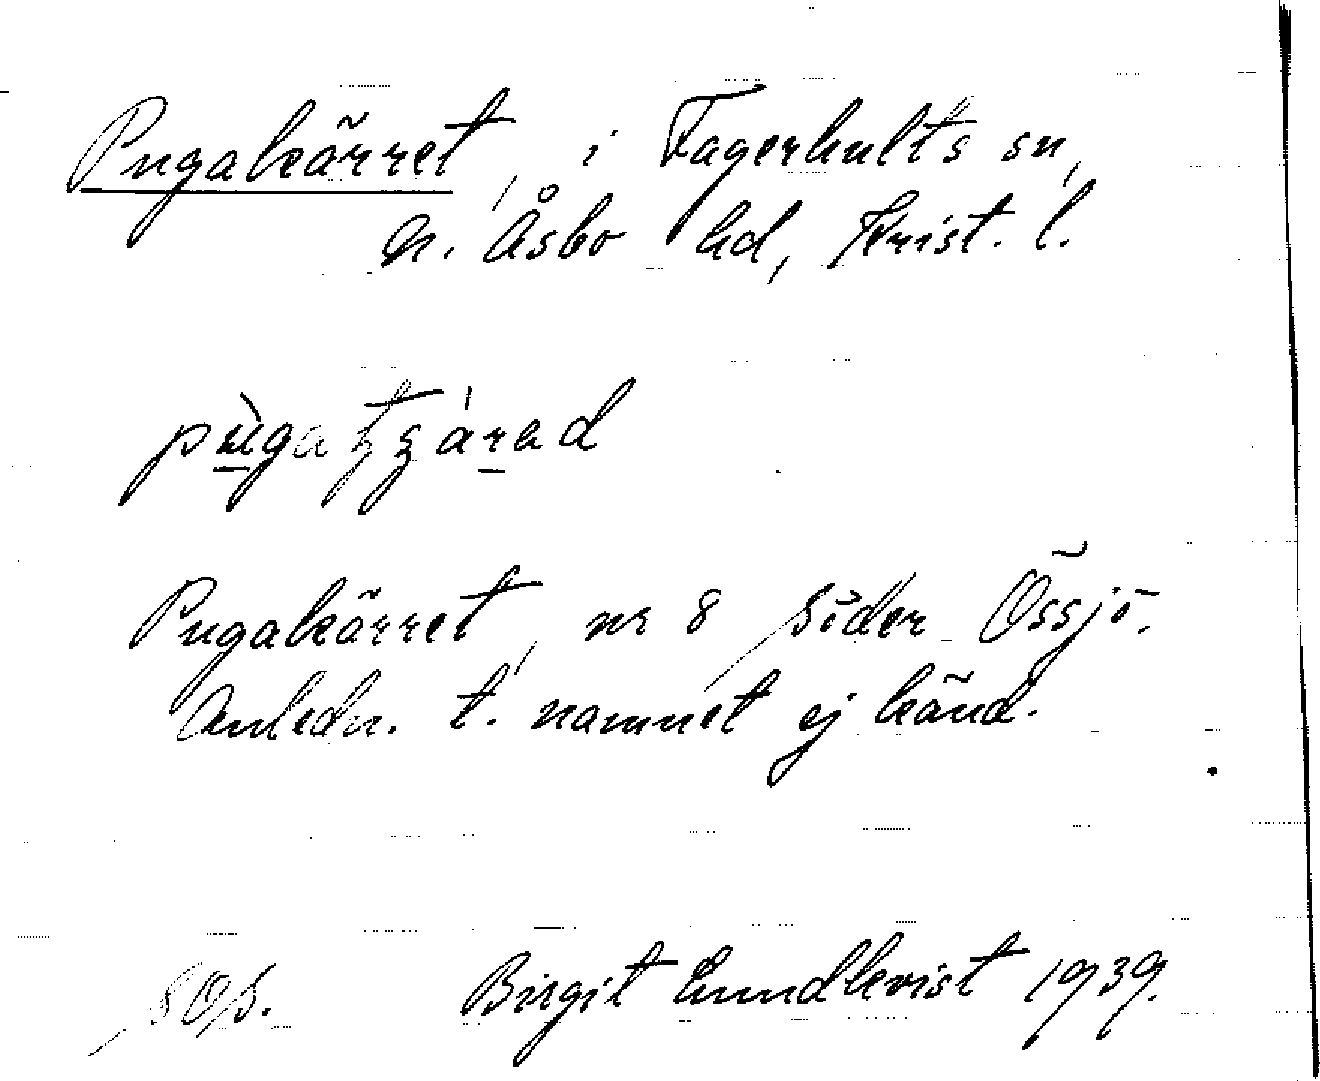 Pugakärret, i Fagerhults sn,
N. Åsbo hd, Krist. l.
Pugakärret, nr 8 Söder Össjö.
Anledn. t. namnet ej känd.
Birgit Lundkvist 1939.